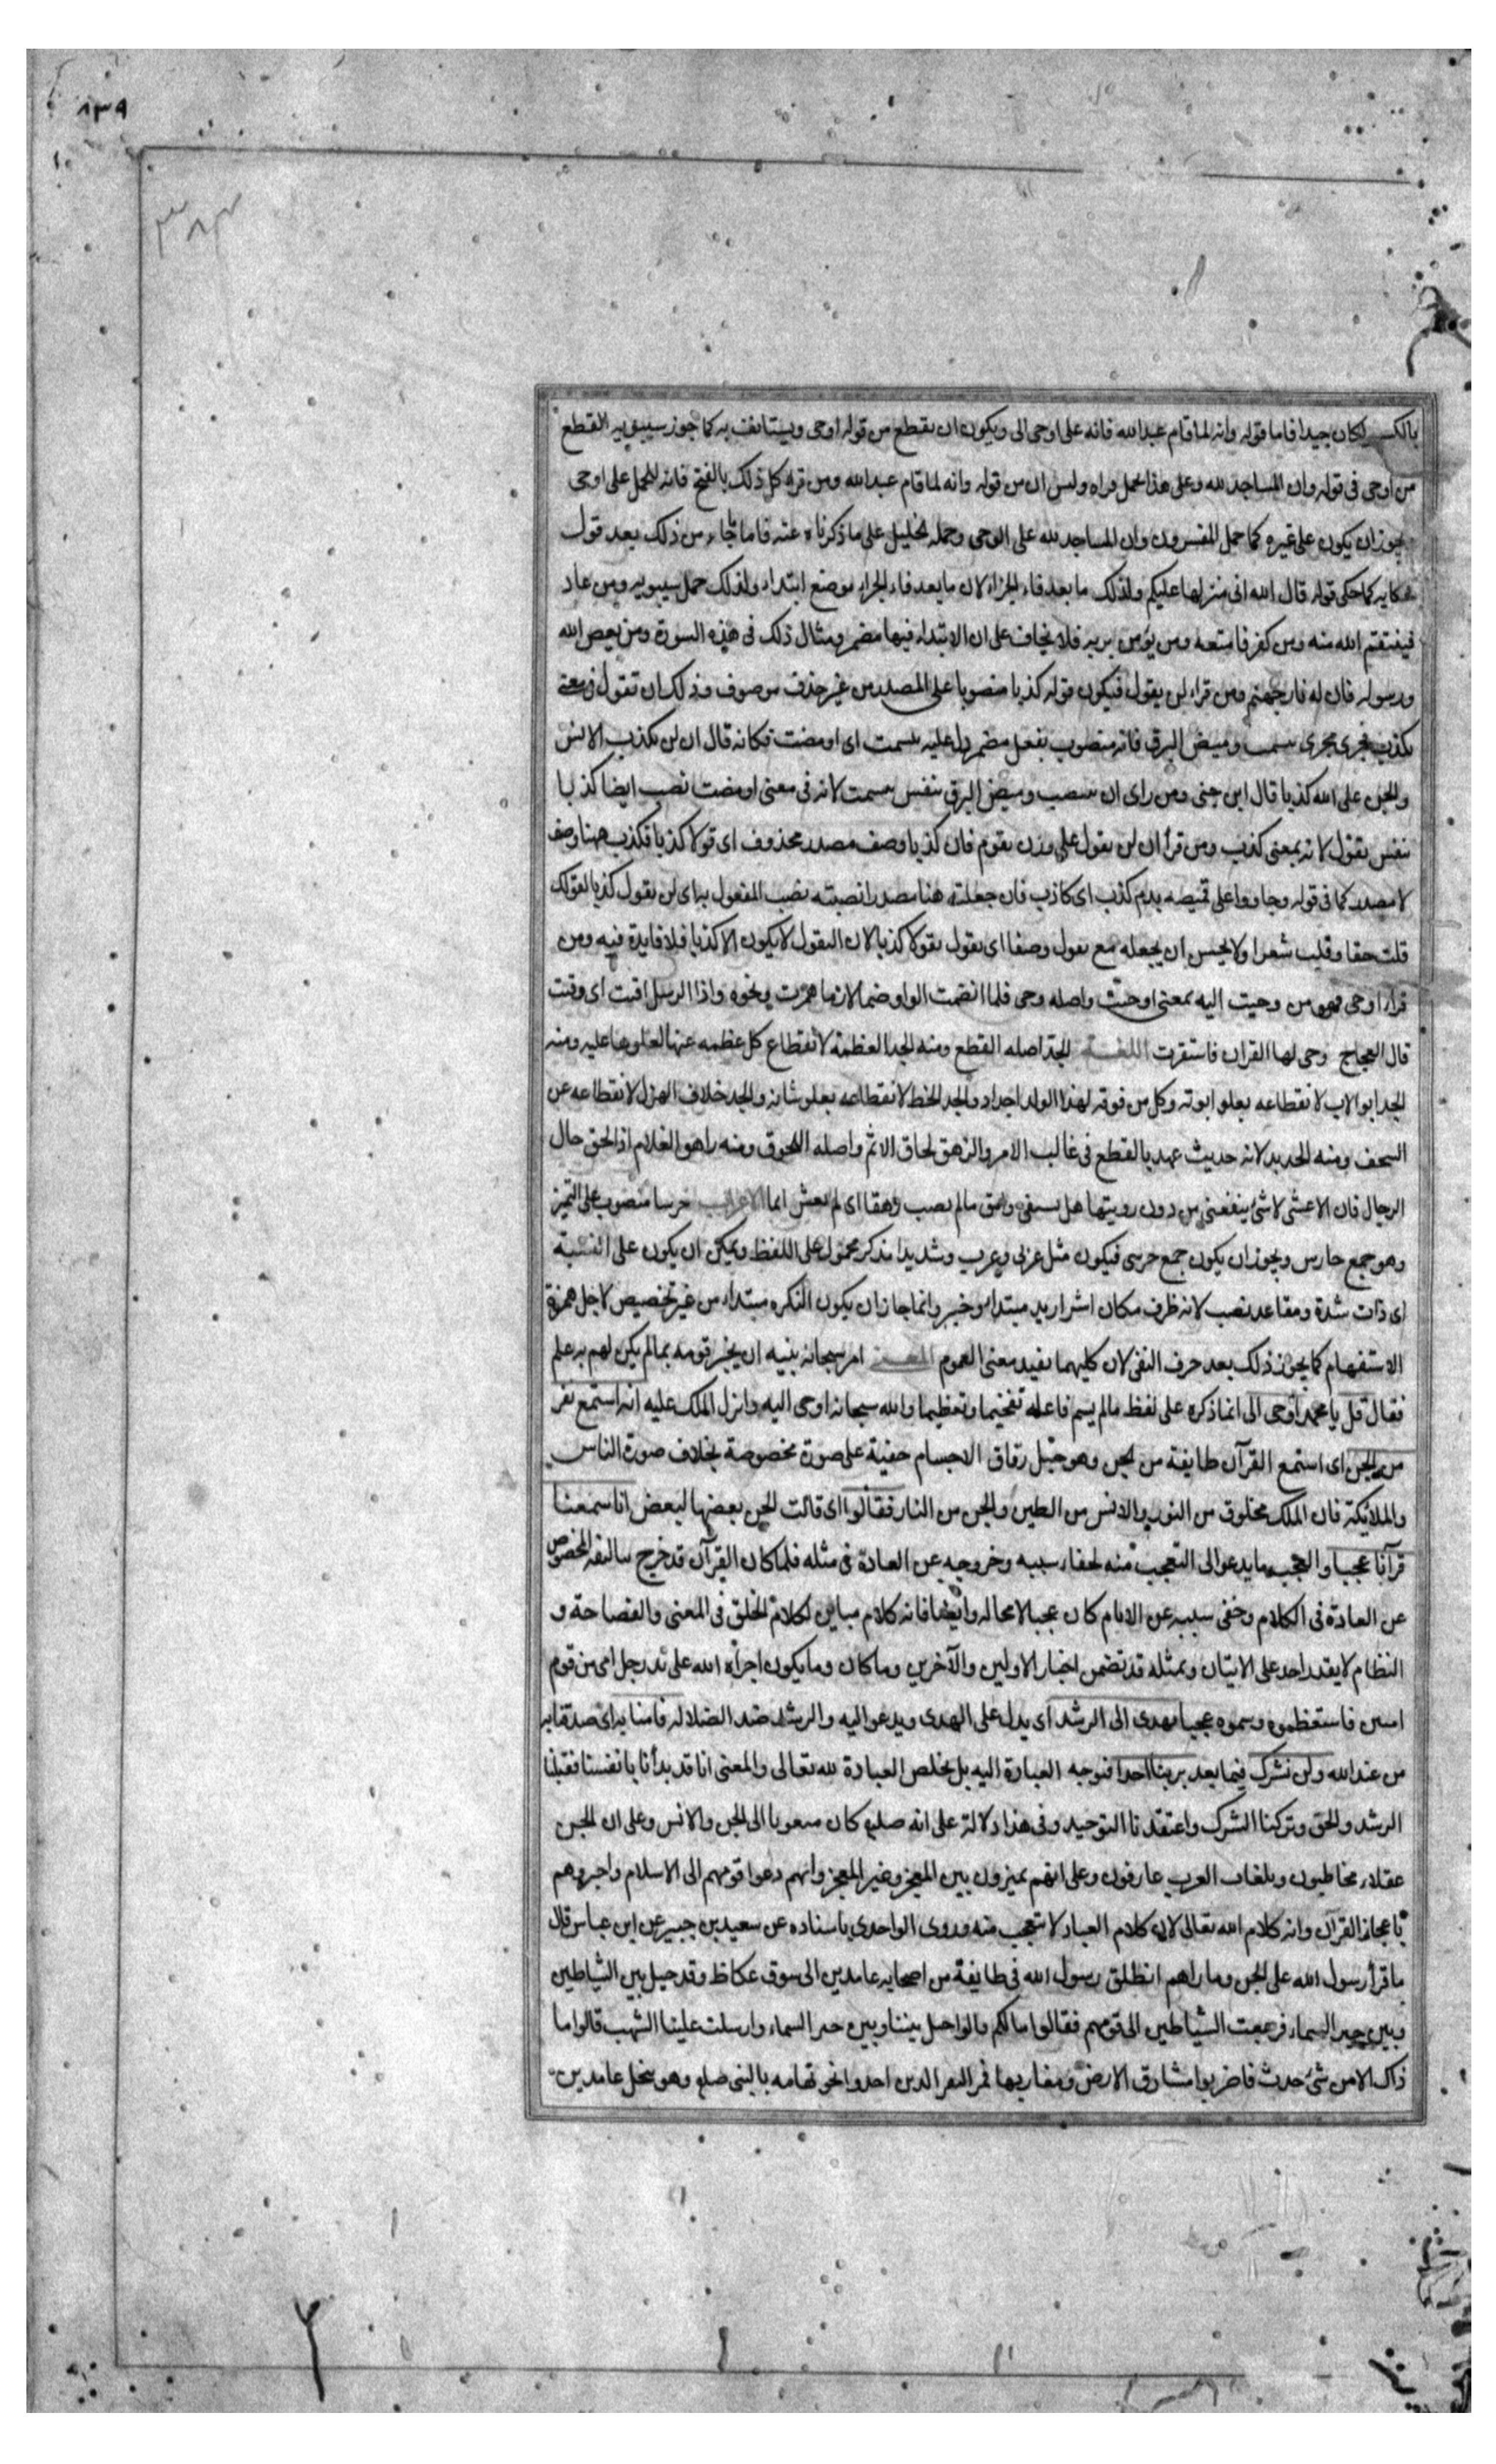 ٨٣٩
٣٨٣
بالكسر لكان جيدا فاما قوله وانه لما قام عبدالله فانه على اوحى الى ويكون ان يقطع من قوله اوحى ويستانف به كما جوز سيبويه القطع
من اوحى فى قوله وان المساجد لله وعلى هذا يحمل قراه وليس ان من قوله وانه لما قام عبدالله ومن قراء كل ذلك بالفتح فانه للحمل على اوحى
يجوز ان يكون على غيره كما حمل المفسرون وان المساجد لله على الوحى وحمله الخليل على ما ذكرناه عنه فاما ما جاء من ذلك بعد قول
حكايه كما حكى قوله قال الله انى منزلها عليكم ولذلك ما بعد فاء الجزاء لان ما بعد فاء الجزاء موضع ابتداء ولذلك حمل سيبويه ومن عاد
فينتقم الله منه ومن كفر فامتعه ومن يؤمن بربه فلا يخاف على ان الابتداء فيها مضمر ومثال ذلك فى هذه السورة ومن يعص الله
ورسوله فان له نار جهنم ومن قراء لن يقول فيكون قوله كذبا منصوبا على المصدر من غير حذف موصوف وذلك ان تقول فى معنى
تكذب فجرى مجرى تبسمت وميض البرق فانه منصوب بفعل مضمر دل عليه تبسمت اى اومضت فكانه قال ان لن تكذب الانس
والجن على الله كذبا قال ابن جنى ومن راى ان ينصب وميض البرق بنفس تبسمت لانه فى معنى اومضت نصب ايضا كذبا
بنفس تقول لانه بمعنى كذب ومن قرأ ان لن تقول على وزن تقوم فان كذبا وصف مصدر محذوف اى قولا كذبا فكذب ههنا وصف
لا مصدر كما فى قوله وجاوا على قميصه بدم كذب اى كاذب فان جعلته هنا مصدرا نصبته نصب المفعول به اى لن تقول كذبا كقولك
قلت حقا وقلت شعرا ولا يحسن ان يجعله مع تقول وصفا اى تقول تقولا كذبا لان التقول لا يكون الا كذبا فلا فايدة فيه ومن
قراء اوحى فهو من وحيت اليه بمعنى اوحيت واصله وحى فلما انضمت الواو ضما لازما همزت ونحوه واذا الرسل اقتت اى وقتت
قال العجاج وحى لها القرار فاستقرت اللغـــة الجد اصله القطع ومنه الجد العظمة لانقطاع كل عظمه عنها لعلوها عليه ومنه
الجد ابو الاب لانقطاعه بعلو ابوته وكل من فوقه لهذا الولد اجداد والجد الحظ لانقطاعه بعلو شانه والجد خلاف الهزل لانقطاعه عن
السخف ومنه الجديد لانه حديث عهد بالقطع فى غالب الامر والرهق لحاق الاثم واصله اللحوق ومنه راهق الغلام اذا لحق حال
الرجال قال الاعشى لا شئ ينفعنى من دون رويتها هل يستفى وامق ما لم يصب رهقا اى لم يغش اثما الاعراب حرسا منصوب على التميز
وهو جمع حارس ويجوز ان يكون جمع حرسى فيكون مثل عربى وعرب وشديدا مذكر محمول على اللفظ ويمكن ان يكون على النسبة
اى ذات شدة ومقاعد نصب لانه ظرف مكان اشر اريد مبتداء وخبر وانما جاز ان يكون النكره مبتداء من غير تخصيص لاجل همزة
الاستفهام كما يجوز ذلك بعد حرف النفى لان كليهما تفيد معنى العموم المعنــى امر سبحانه نبيه ان يخبر قومه بما لم يكن لهم به علم
فقال قل يا محمد اوحى الى انما ذكره على لفظ ما لم يسم فاعله تفخيما وتعظيما والله سبحانه اوحى اليه وانزل الملك عليه انه استمع نفر
من الجن اى استمع القرآن طايفة من الجن وهو جيل رقاق الاجسام خفية على صورة مخصوصة بخلاف صورة الناس
والملائكة فان الملك مخلوق من النور والانس من الطين والجن من النار فقالوا اى قالت الجن بعضها لبعض انا سمعنا
قرآنا عجبا والعجب ما يدعوا الى التعجب منه لخفاء سببه وخروجه عن العادة فى مثله فلما كان القرآن قد خرج بتاليفه المخصوص
عن العادة فى الكلام وخفى سببه عن الانام كان عجبا لا محاله وايضا فانه كلام مباين لكلام الخلق فى المعنى والفصاحة و
النظام لا يقدر احد على الاتيان بمثله قد تضمن اخبار الاولين والآخرين وما كان وما يكون اجراه الله على يد رجل امى من قوم
اميين فاستعظموه وسموه عجبا يهدى الى الرشد اى يدل على الهدى ويدعوا اليه والرشد ضد الضلال فامنا به اى صدقنا به
من عندالله ولن نشرك فيما بعد بربنا احدا فنوجه العبادة اليه بل نخلص العبادة لله تعالى والمعنى انا قد بدأنا بانفسنا فقبلنا
الرشد والحق وتركنا الشرك واعتقدنا التوحيد وفى هذا دلالة على انه صلعم كان مبعوثا الى الجن والانس وعلى ان الجن
عقلاء مخاطبون وبلغات العرب عارفون وعلى انهم يميزون بين المعجز وغير المعجز وانهم دعوا قومهم الى الاسلام واخبروهم
باعجاز القرآن وانه كلام الله تعالى لان كلام العباد لا يتعجب منه وروى الواحدى باسناده عن سعيد بن جبير عن ابن عباس قال
ما قرأ رسول الله على الجن وما راهم انطلق رسول الله فى طايفة من اصحابه عامدين الى سوق عكاظ وقد حيل بين الشياطين
وبين خبر السماء فرجعت الشياطين الى قومهم فقالوا مالكم قالوا حيل بيننا وبين خبر السماء وارسلت علينا الشهب قالوا ما
ذاك الا من شئ حدث فاضربوا مشارق الارض ومغاربها فمر النفر الذين اخذوا نحو تهامه بالنبى صلعم وهو بنخل عامدين